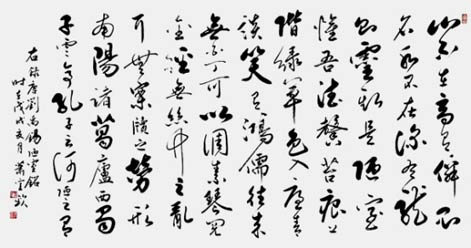 山不在高有僊則
名水不在深有龍
則靈斯是陋室
惟吾德馨苔痕上
階緑草色入簾青
談笑有鴻儒往来
無白丁可以調素琴閲
金經無絲竹之亂
耳無案牘之勞形
南陽諸葛廬西蜀
子雲亭孔子云何陋之有
右録唐劉禹錫陋室銘
時戊戌